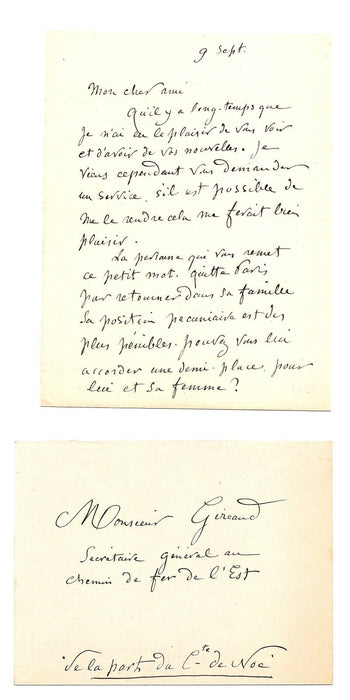 9 Sept.
Mon cher ami
Qu'il y a long-temps que
je n'ai eu le plaisir de vous voir
et d'avoir de vos nouvelles. Je
viens cependant vous demander
un service, s'il est possible de
me le rendre cela me ferait bien
plaisir.
La personne qui vous remet
ce petit mot. quitte Paris
par retourner dans sa famille
Sa position pecuniaire est des
plus pénibles. pouvez vous lui
accorder une demi-place. pour
lui et sa femme ?
Monsieur Giraud
Secrétaire général au
chemin de fer de l'Est
de la part du Cte de Noé